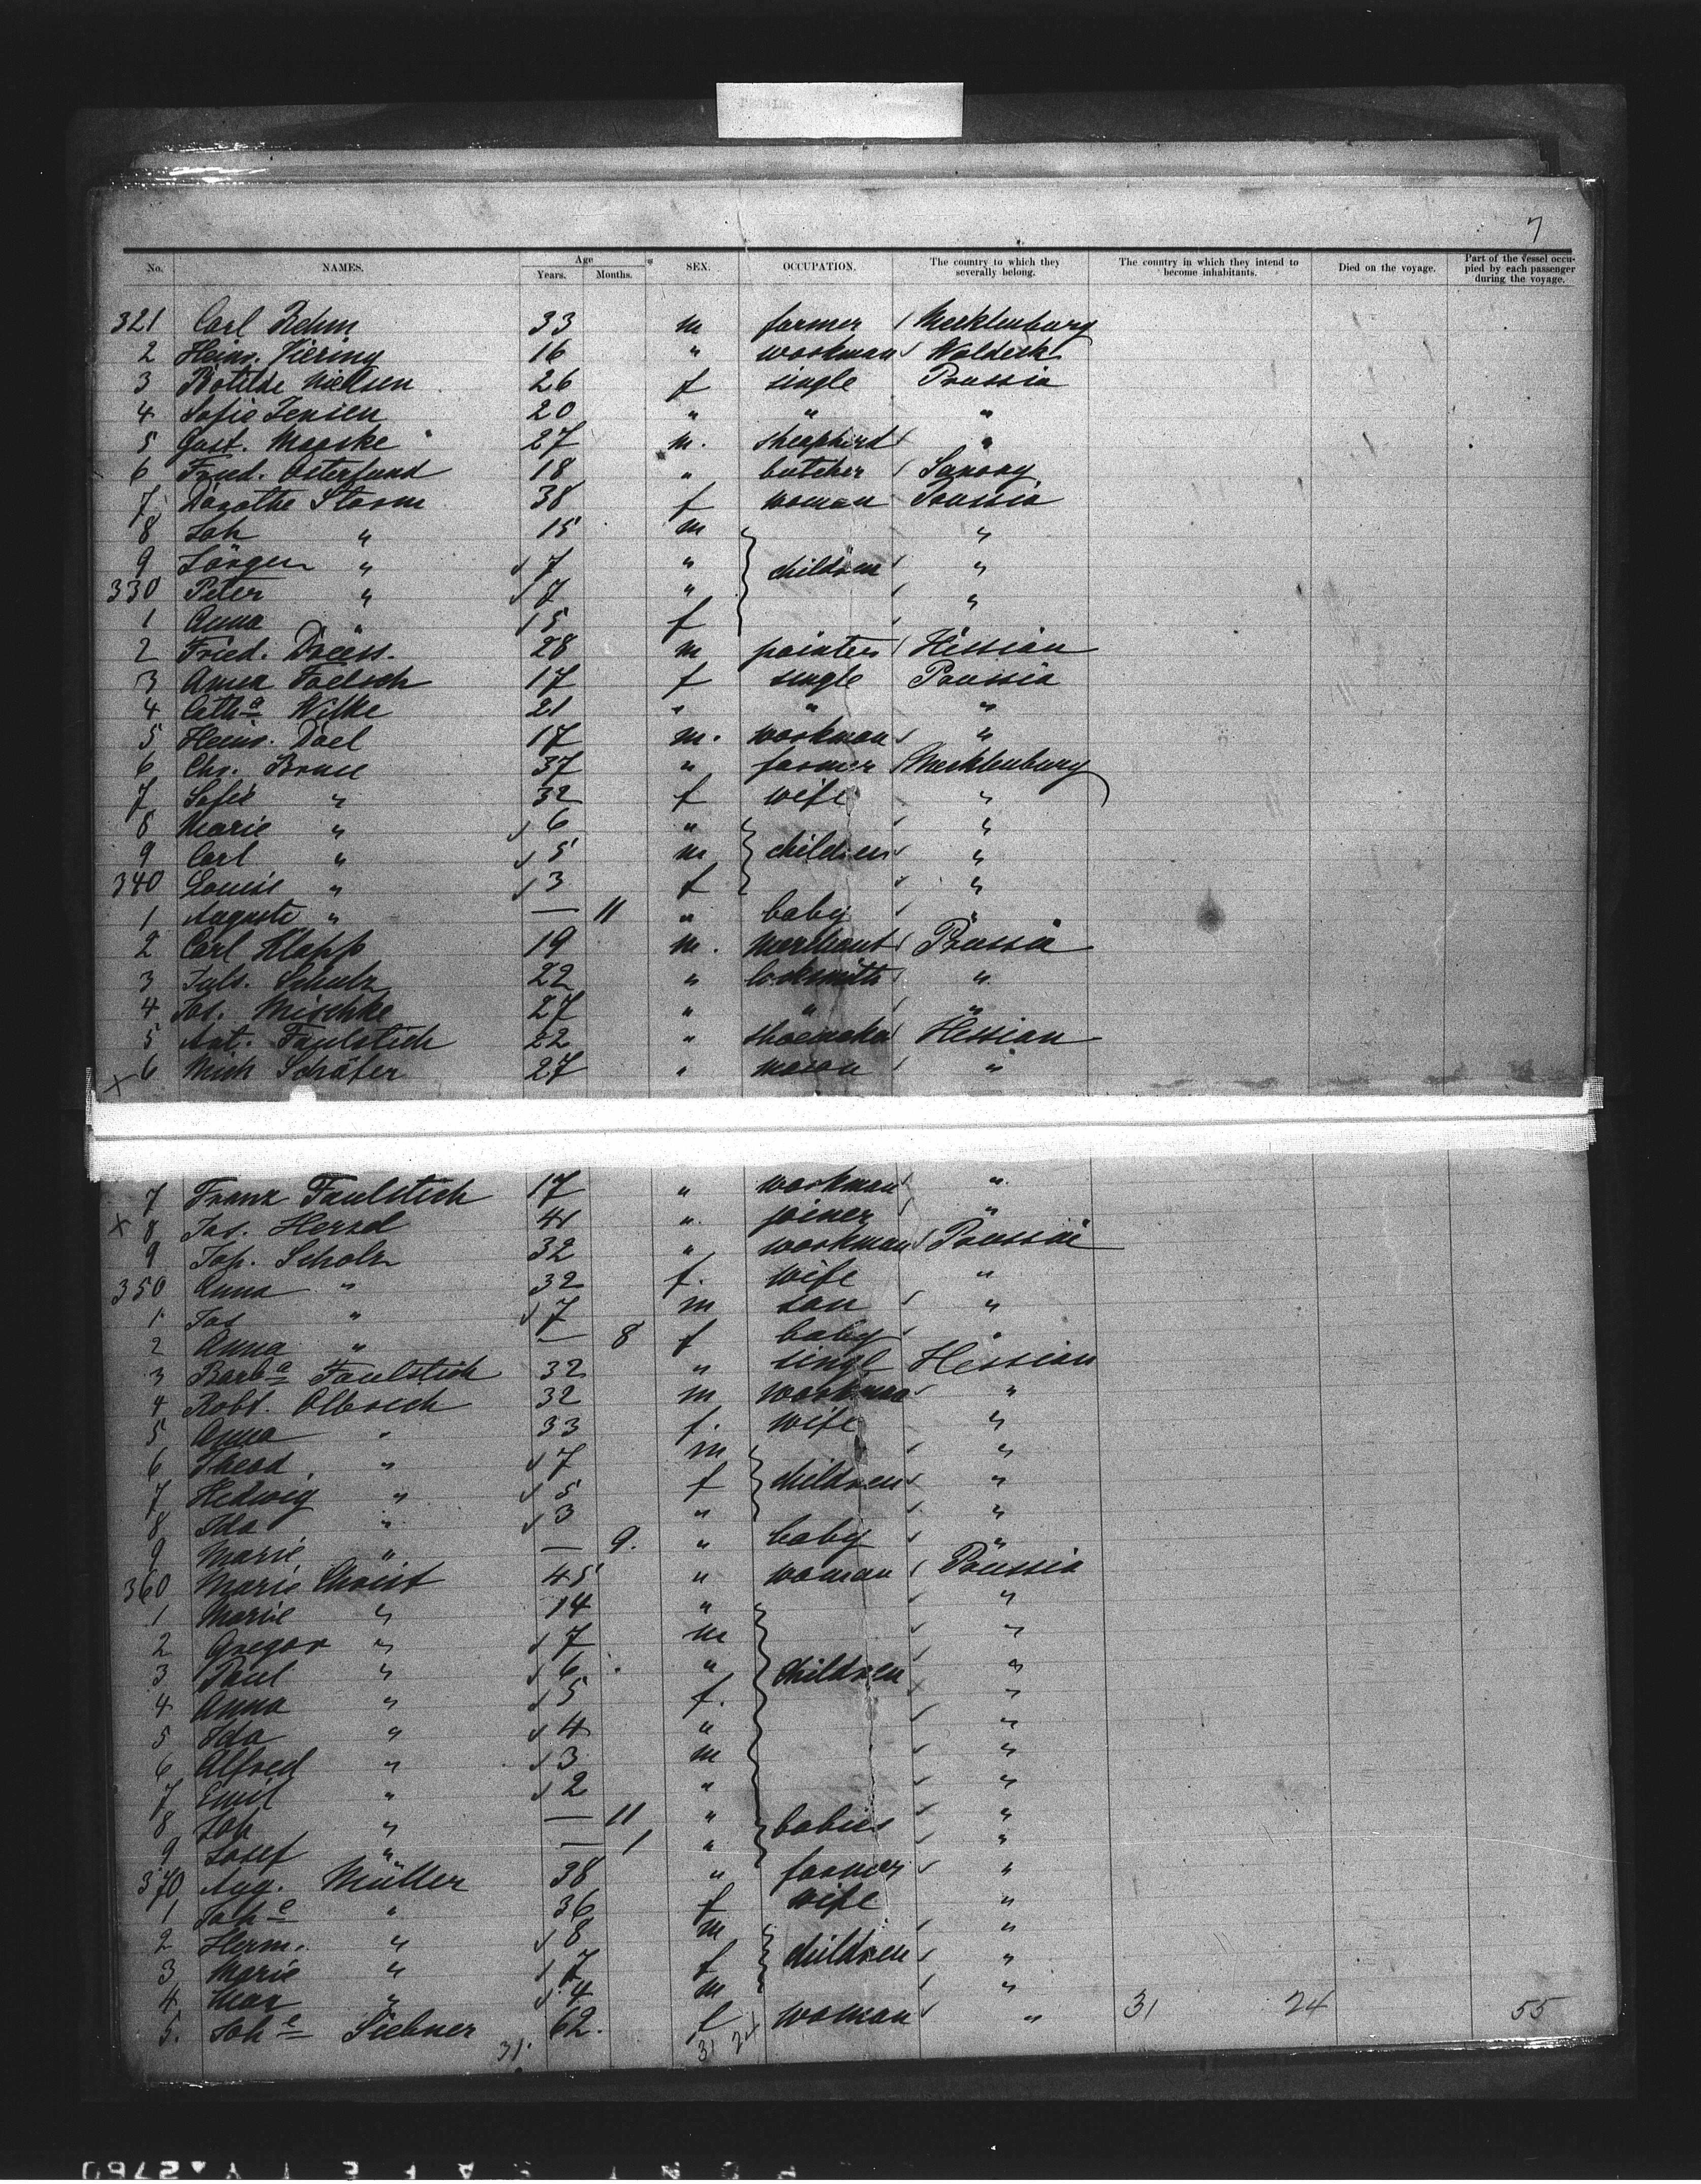 7
No. NAMES. Age Years. Months. SEX. OCCUPATION. The country to which they severally belong. The country in which they intend to become inhabitants. Died on the voyage. Part of the vessel occupied by each passenger during the voyage.
321 Carl Rehm 33 m farmer Mecklenburg
2 Heinr. Viering 16 " workman Waldeck
3 Botilde Nielsen 26 f single Prussia
4 Sofie Jensen 20 " " "
5 Gust. Maaske 27 m. shepherd "
6 Fried. Osterfund 18 " butcher Saxony
7 Dorothe Storm 38 f woman Prussia
8 Joh " 15 m "
9 Jörgen " 7 " children "
330 Peter " 7 " "
1 Anna " 5 f "
2 Fried. Dreiss. 28 m painter Hessian
3 Anna Foelsch 17 f single Prussia
4 Catha Wilke 21 " " "
5 Heinr. Dael 17 m. workman "
6 Chr. Bruse 37 " farmer Mecklenburg
7 Sofie " 32 f wife "
8 Marie " 6 " "
9 Carl " 5 m children "
340 Louise " 3 f "
1 Auguste " — 11 " baby "
2 Carl Klapp 19 m. merchant Prussia
3 Juls. Schulz 22 " locksmith "
4 Jos. Mischke 27 " " "
5 Ant. Faulstich 22 " shoemaker Hessian
x 6 Mich Schäfer 27 " mason "
7 Franz Faulstich 17 " workman "
x 8 Jos. Herzel 41 " joiner "
9 Jos. Scholz 32 " workman Prussia
350 Anna " 32 f. wife "
1 Jos " 7 m son "
2 Anna " — 8 f baby "
3 Barba Faulstich 32 " singl Hessian
4 Robt. Olbrich 32 m workman "
5 Anna " 33 f. wife "
6 Theod. " 7 m "
7 Hedwig " 5 f children "
8 Ida " 3 " "
9 Marie " — 9. " baby "
360 Marie Christ 45 " woman Prussia
1 Marie " 14 " "
2 Gregor " 7 m "
3 Paul " 6 " children "
4 Anna " 5 f. "
5 Ida " 4 " "
6 Alfred " 3 m "
7 Emil " 2 " "
8 Joh " — 11 " babies "
9 Josef " — 1 " "
370 Aug. Müller 38 " farmer "
1 Johe " 36 f wife "
2 Herm. " 8 m "
3 Marie " 7 f children "
4 Max " 4 m "
5. Johe Siebner 62. f woman " 31 24 55
31 31 24